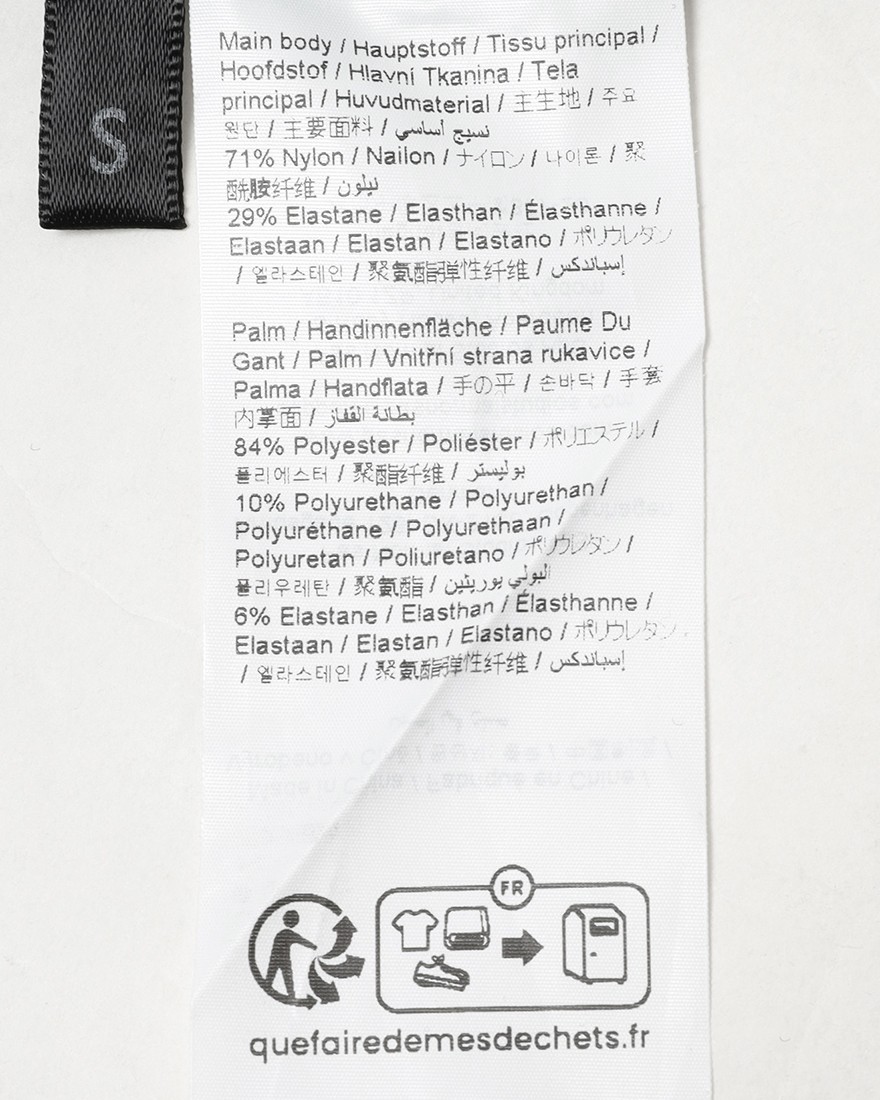 S
Main body / Hauptstoff / Tissu principal /
Hoofdstof / Hlavní Tkanina / Tela
principal / Huvudmaterial / 主生地 / 주요
원단 / 主要面料 / نسيج أساسي
71% Nylon / Nailon / ナイロン / 나이론 / 聚
酰胺纤维 / نيلون
29% Elastane / Elasthan / Élasthanne /
Elastaan / Elastan / Elastano / ポリウレタン
/ 엘라스테인 / 聚氨酯弹性纤维 / إسباندكس
Palm / Handinnenfläche / Paume Du
Gant / Palm / Vnitřní strana rukavice /
Palma / Handflata / 手の平 / 손바닥 / 手套
内掌面 / بطانة القفاز
84% Polyester / Poliéster / ポリエステル /
폴리에스터 / 聚酯纤维 / بوليستر
10% Polyurethane / Polyurethan /
Polyuréthane / Polyurethaan /
Polyuretan / Poliuretano / ポリウレタン /
폴리우레탄 / 聚氨酯 / البولي يوريثين
6% Elastane / Elasthan / Élasthanne /
Elastaan / Elastan / Elastano / ポリウレタン
/ 엘라스테인 / 聚氨酯弹性纤维 / إسباندكس
FR
quefairedemesdechets.fr